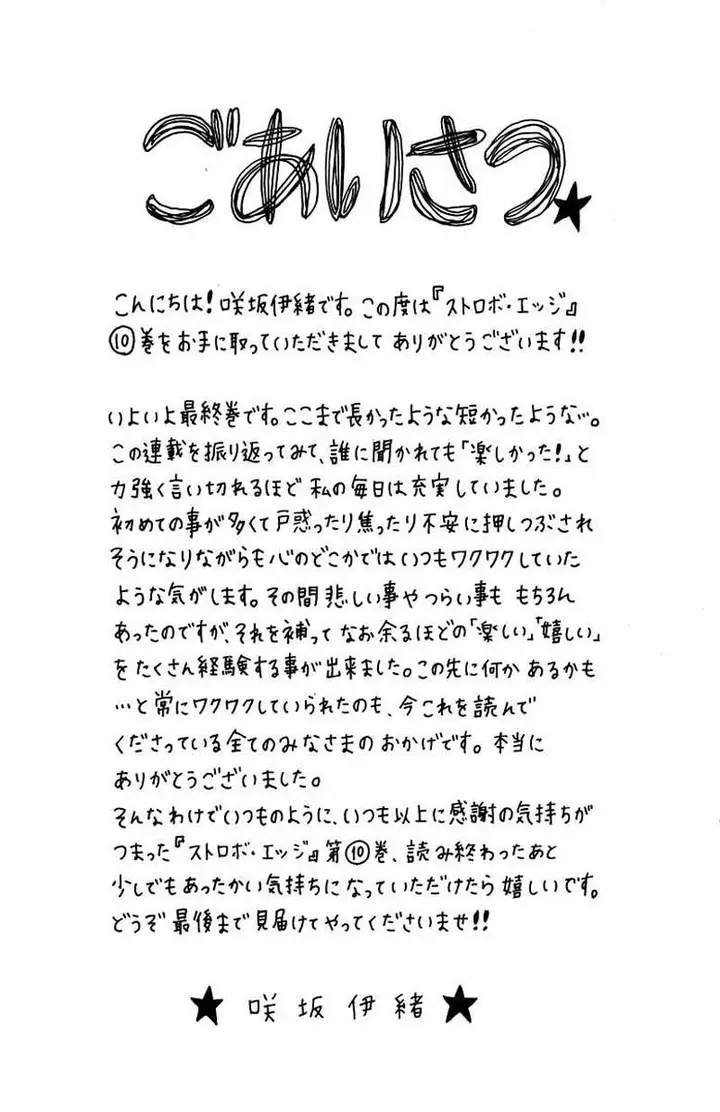 ごあいさつ★
こんにちは!咲坂伊緒です。この度は『ストロボ・エッジ』
⑩巻をお手に取っていただきまして ありがとうございます!!
いよいよ最終巻です。ここまで長かったような短かったような…。
この連載を振り返ってみて、誰に聞かれても「楽しかった!」と
力強く言い切れるほど 私の毎日は充実していました。
初めての事が多くて戸惑ったり焦ったり不安に押しつぶされ
そうになりながらも心のどこかではいつもワクワクしていた
ような気がします。その間悲しい事や つらい事も もちろん
あったのですが、それを補って なお余るほどの「楽しい」「嬉しい」
をたくさん経験する事が出来ました。この先に何か あるかも
…と常にワクワクしていられたのも、今これを読んで
くださっている全てのみなさまの おかげです。本当に
ありがとうございました。
そんなわけでいつものように、いつも以上に感謝の気持ちが
つまった『ストロボ・エッジ』第⑩巻、読み終わったあと
少しでもあったかい気持ちになっていただけたら嬉しいです。
どうぞ 最後まで見届けてやってくださいませ!!
★ 咲坂伊緒 ★